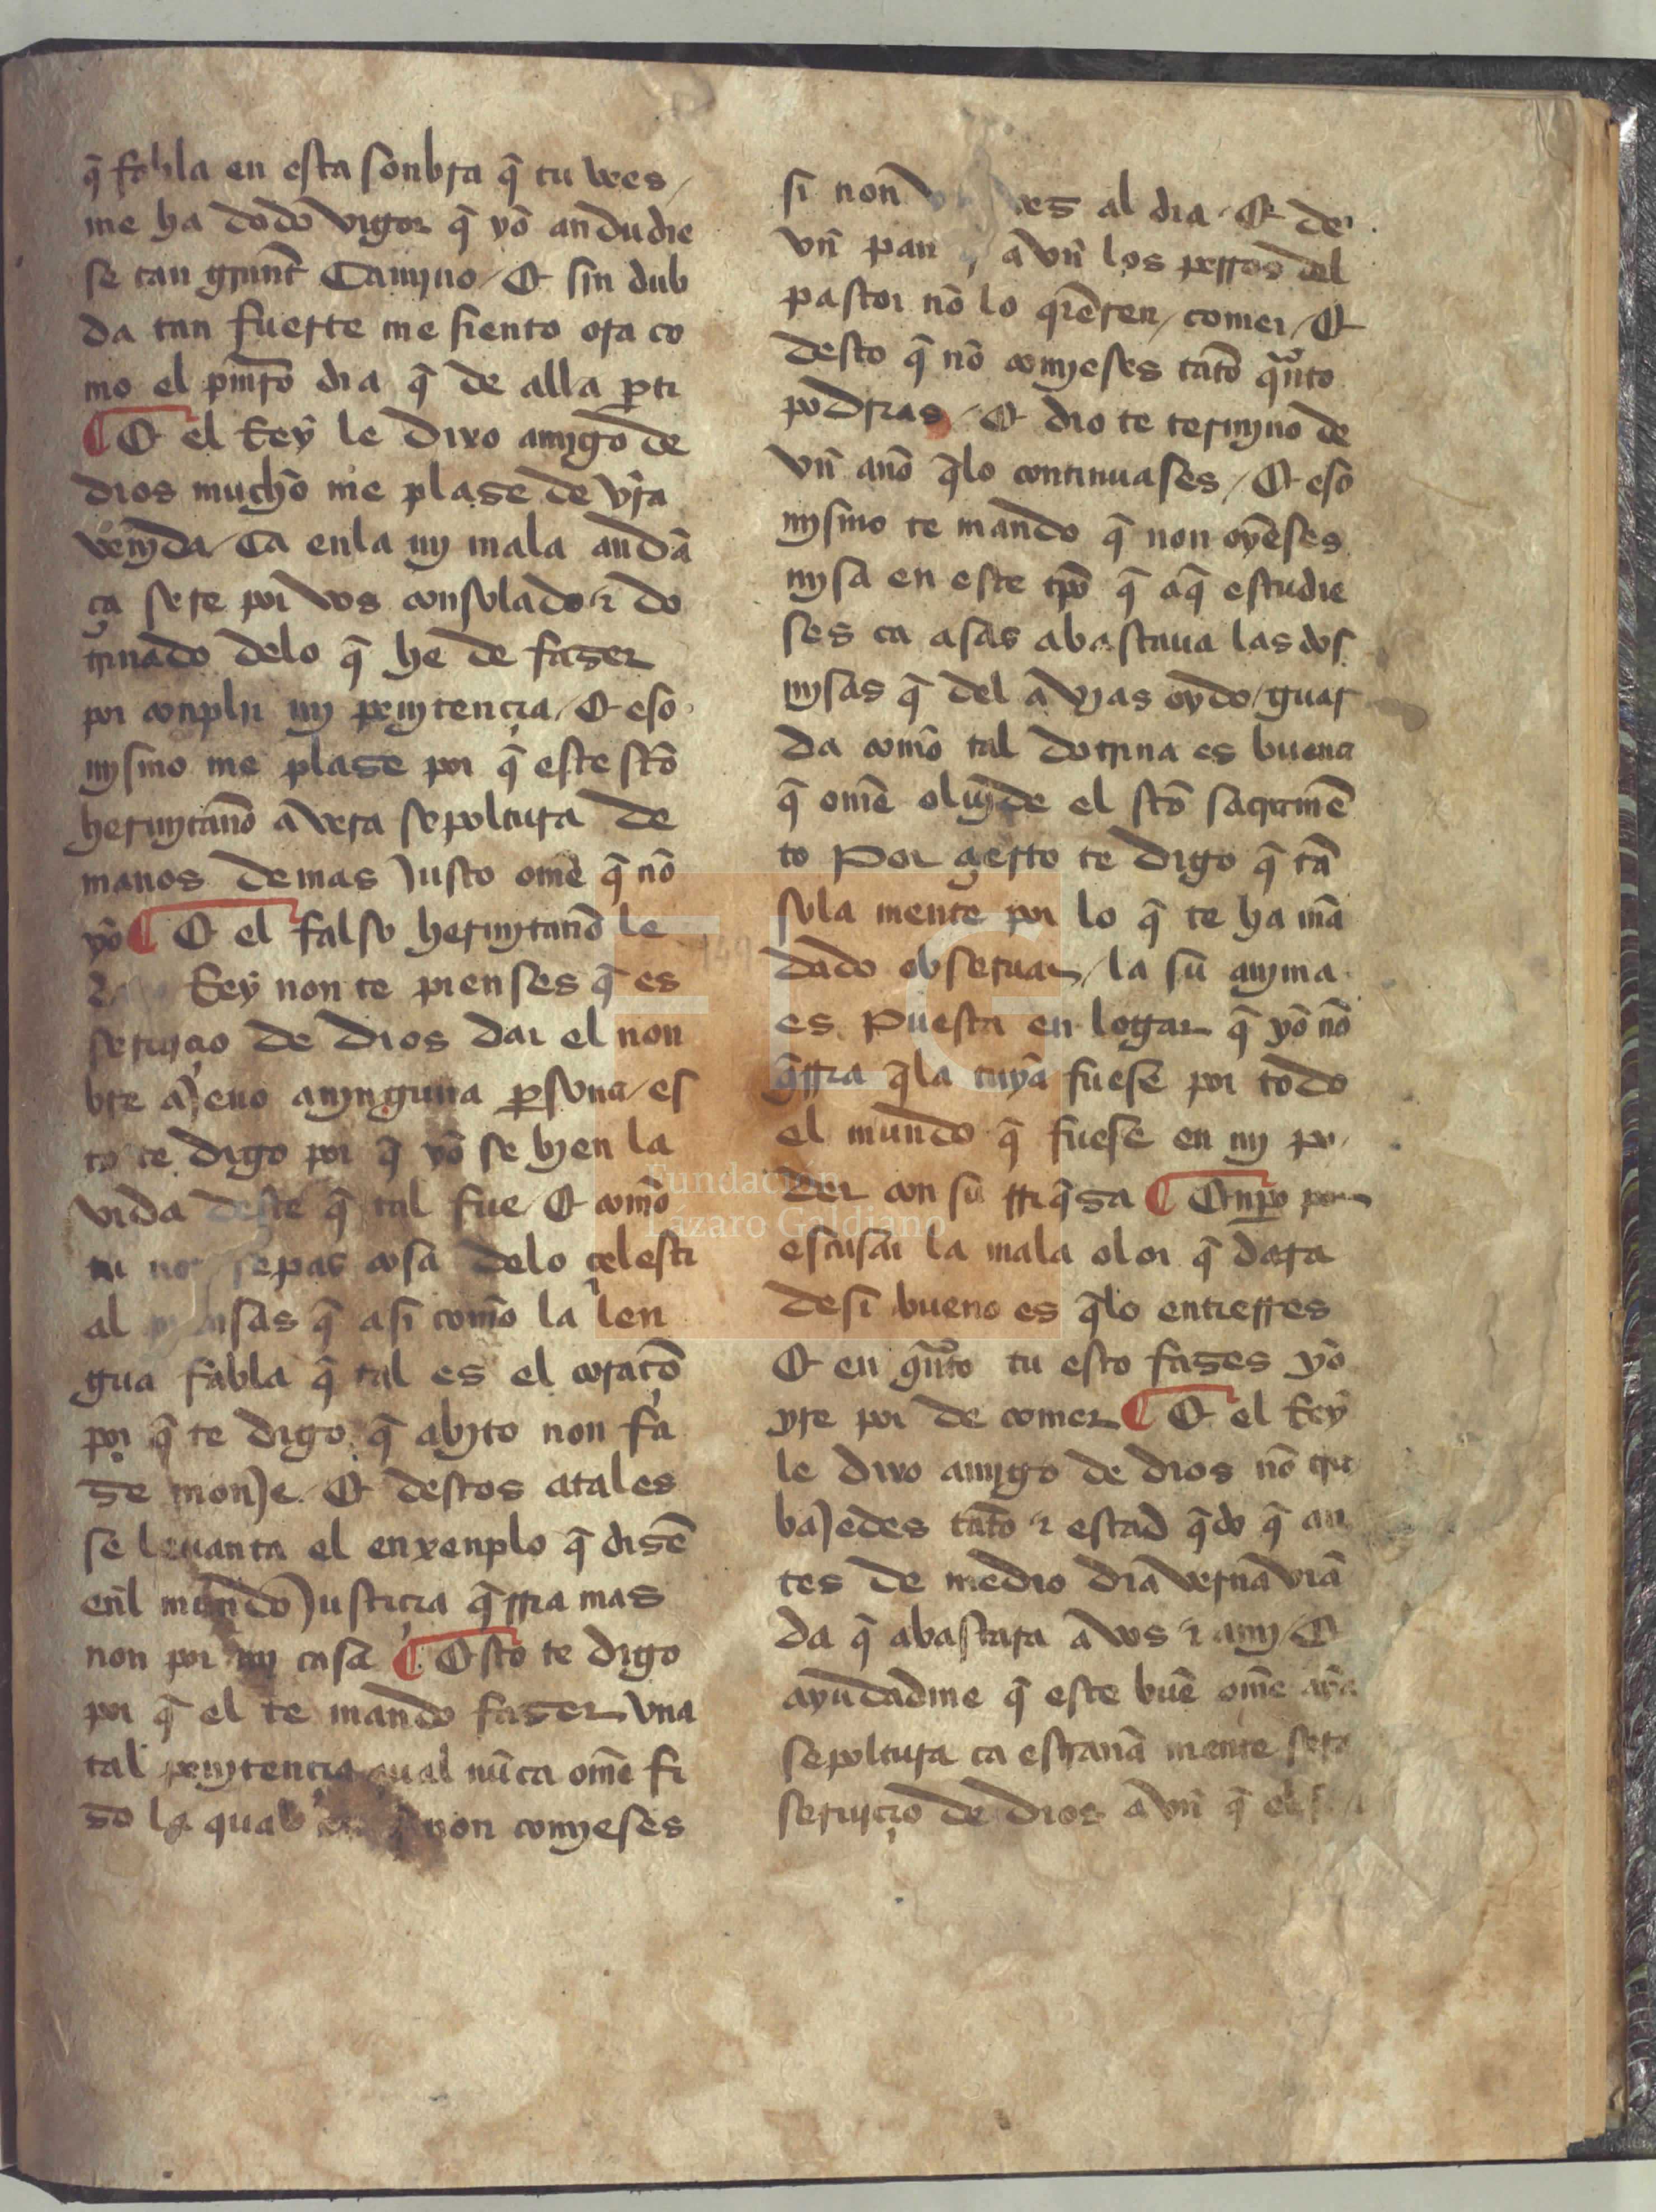 q̃ fabla en esta sonbra q̃ tu vees /
me ha dodo vigor q̃ yo andudie
se tan grant Camino / Et sin dub
da tan fuerte me siento ora co
mo el pmr̃o dia q̃ de alla ꝑti
¶ Et el Rey le dixo amigo de
dios mucho me plase de vr̃a
venida / Ca en la my mala andã
ça sere por vos consolado ⁊ do
trinado delo q̃ he de faser
por conplir my penitençia / Et eso
mysmo me plase por q̃ este sc̃o
hermitano avera sepoltura de
manos de mas justo ome q̃ nõ
yo ¶ Et el falso hermitano le
Rey non te pienses q̃ es
seruiçio de dios dar el non
bre ajeno a ninguna ꝑsona / es
to te digo por q̃ yo se bien la
vida deste q̃ tal fue / Et como
tu non sepas cosa delo çelesti
al piensas q̃ asi como la len
gua fabla q̃ tal es el coraçõ
por q̃ te digo q̃ abito non fa
se monje. Et destos atales
se leuanta el enxenplo q̃ disẽ
enl mundo justiçia q̃rria mas
non por my casa ¶ Esto te digo
por q̃ el te mando faser vna
tal penitençia qual nũca ome fi
so la qual q̃ non comieses
si non al dia · Et de
vn pan avn los perros del
pastor nõ lo quierẽ / comer / Et
desto q̃ nõ comieses tãto quãto
podrias / Et dio te termino de
vn año q̃lo continuases / Et eso
mysmo te mando q̃ non oyeses
mysa en este tp̃o q̃ aq̃ estudie
ses ca asas abastaua las dos
mysas q̃ del avias oydo / guar
da como tal dotrina es buena
q̃ ome oluide el sc̃o sacramẽ
to Por çierto te digo q̃ tã
sola mente por lo q̃ te ha mã
dado obseruar / la su anima
es puesta en logar q̃ yo nõ
q̃rria q̃la tuya fuese por todo
el mundo q̃ fuese en my po
der con su rriq̃sa ¶ Enꝑo por
escusar la mala olor q̃ dara
desi bueno es q̃lo entierres
Et en quãto tu esto fases yo
yre por de comer ¶ Et el Rey
le dixo amigo de dios nõ tra
bajedes tãto ⁊ estad q̃do q̃ an
tes de medio dia verna viã
da q̃ abastara a vos ⁊ a my / Et
ayudadme q̃ este buẽ ome aya
sepoltura ca estraña mente sera
seruiçio de dios avn q̃